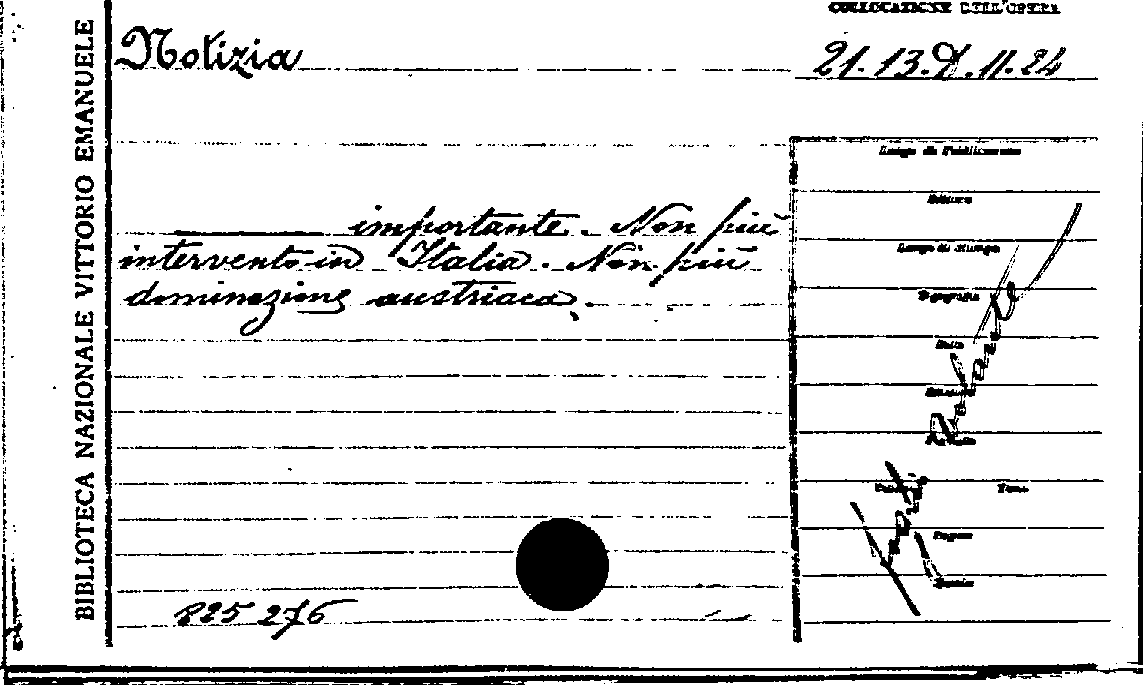 COLLOCAZIONE DELL'OPERA
BIBLIOTECA NAZIONALE VITTORIO EMANUELE
Notizia
21.13.D.11.24
Luogo di Pubblicazione
Editore
Luogo di Stampa
Tipografia
Data
importante. Non più
intervento in Italia. Non più
dominazione austriaca.
Volumi Tomi
Pagine
225276